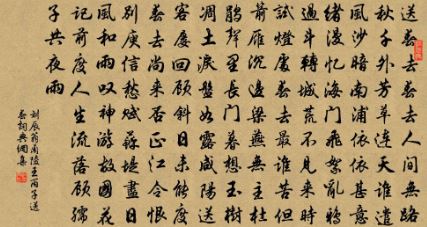 送春去春去人間無路
秋千外芳草連天誰遣
風沙暗南浦依依甚意
緒漫憶海門飛絮亂鴉
過斗轉城荒不見來時
試燈處春去最誰苦但
箭雁沉邊梁燕無主杜
鵑聲里長門暮想玉樹
凋土淚盤如露咸陽送
客屢回顧斜日未能度
春去尚來否正江令恨
別庾信愁賦蘇堤盡日
風和雨嘆神游故國花
記前度人生流落顧孺
子共夜雨
劉辰翁蘭陵王丙子送
春詞典網集